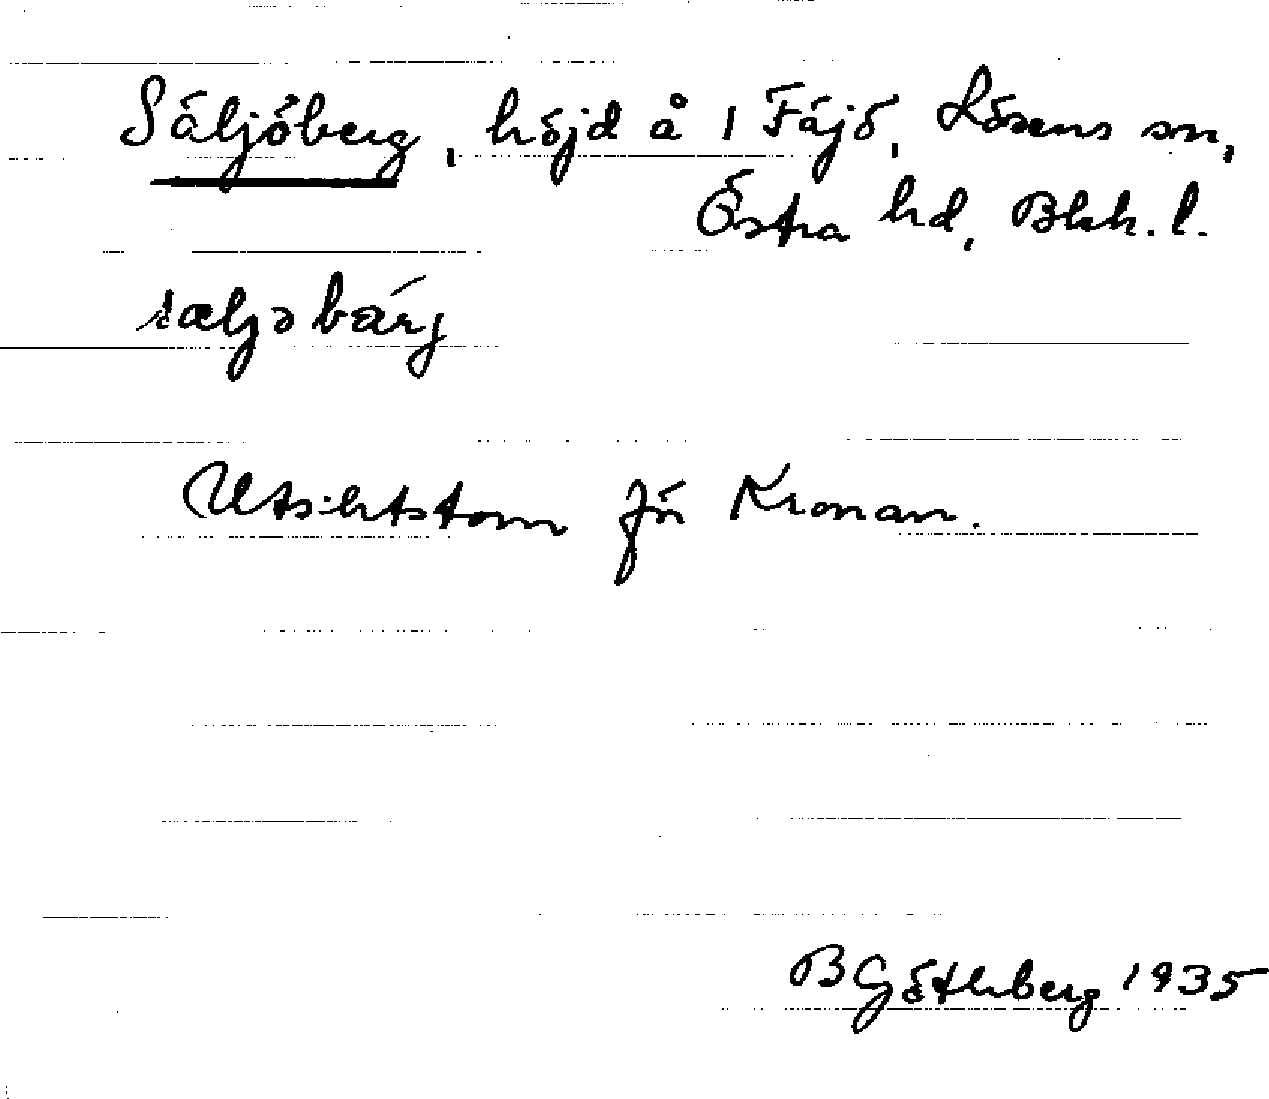 Säljöberg, höjd å 1 Fäjö, Lösens sn,
Östra hd, Blek. l.
sæljəbærj
Utsiktstorn för Kronan.
B Göthberg 1935